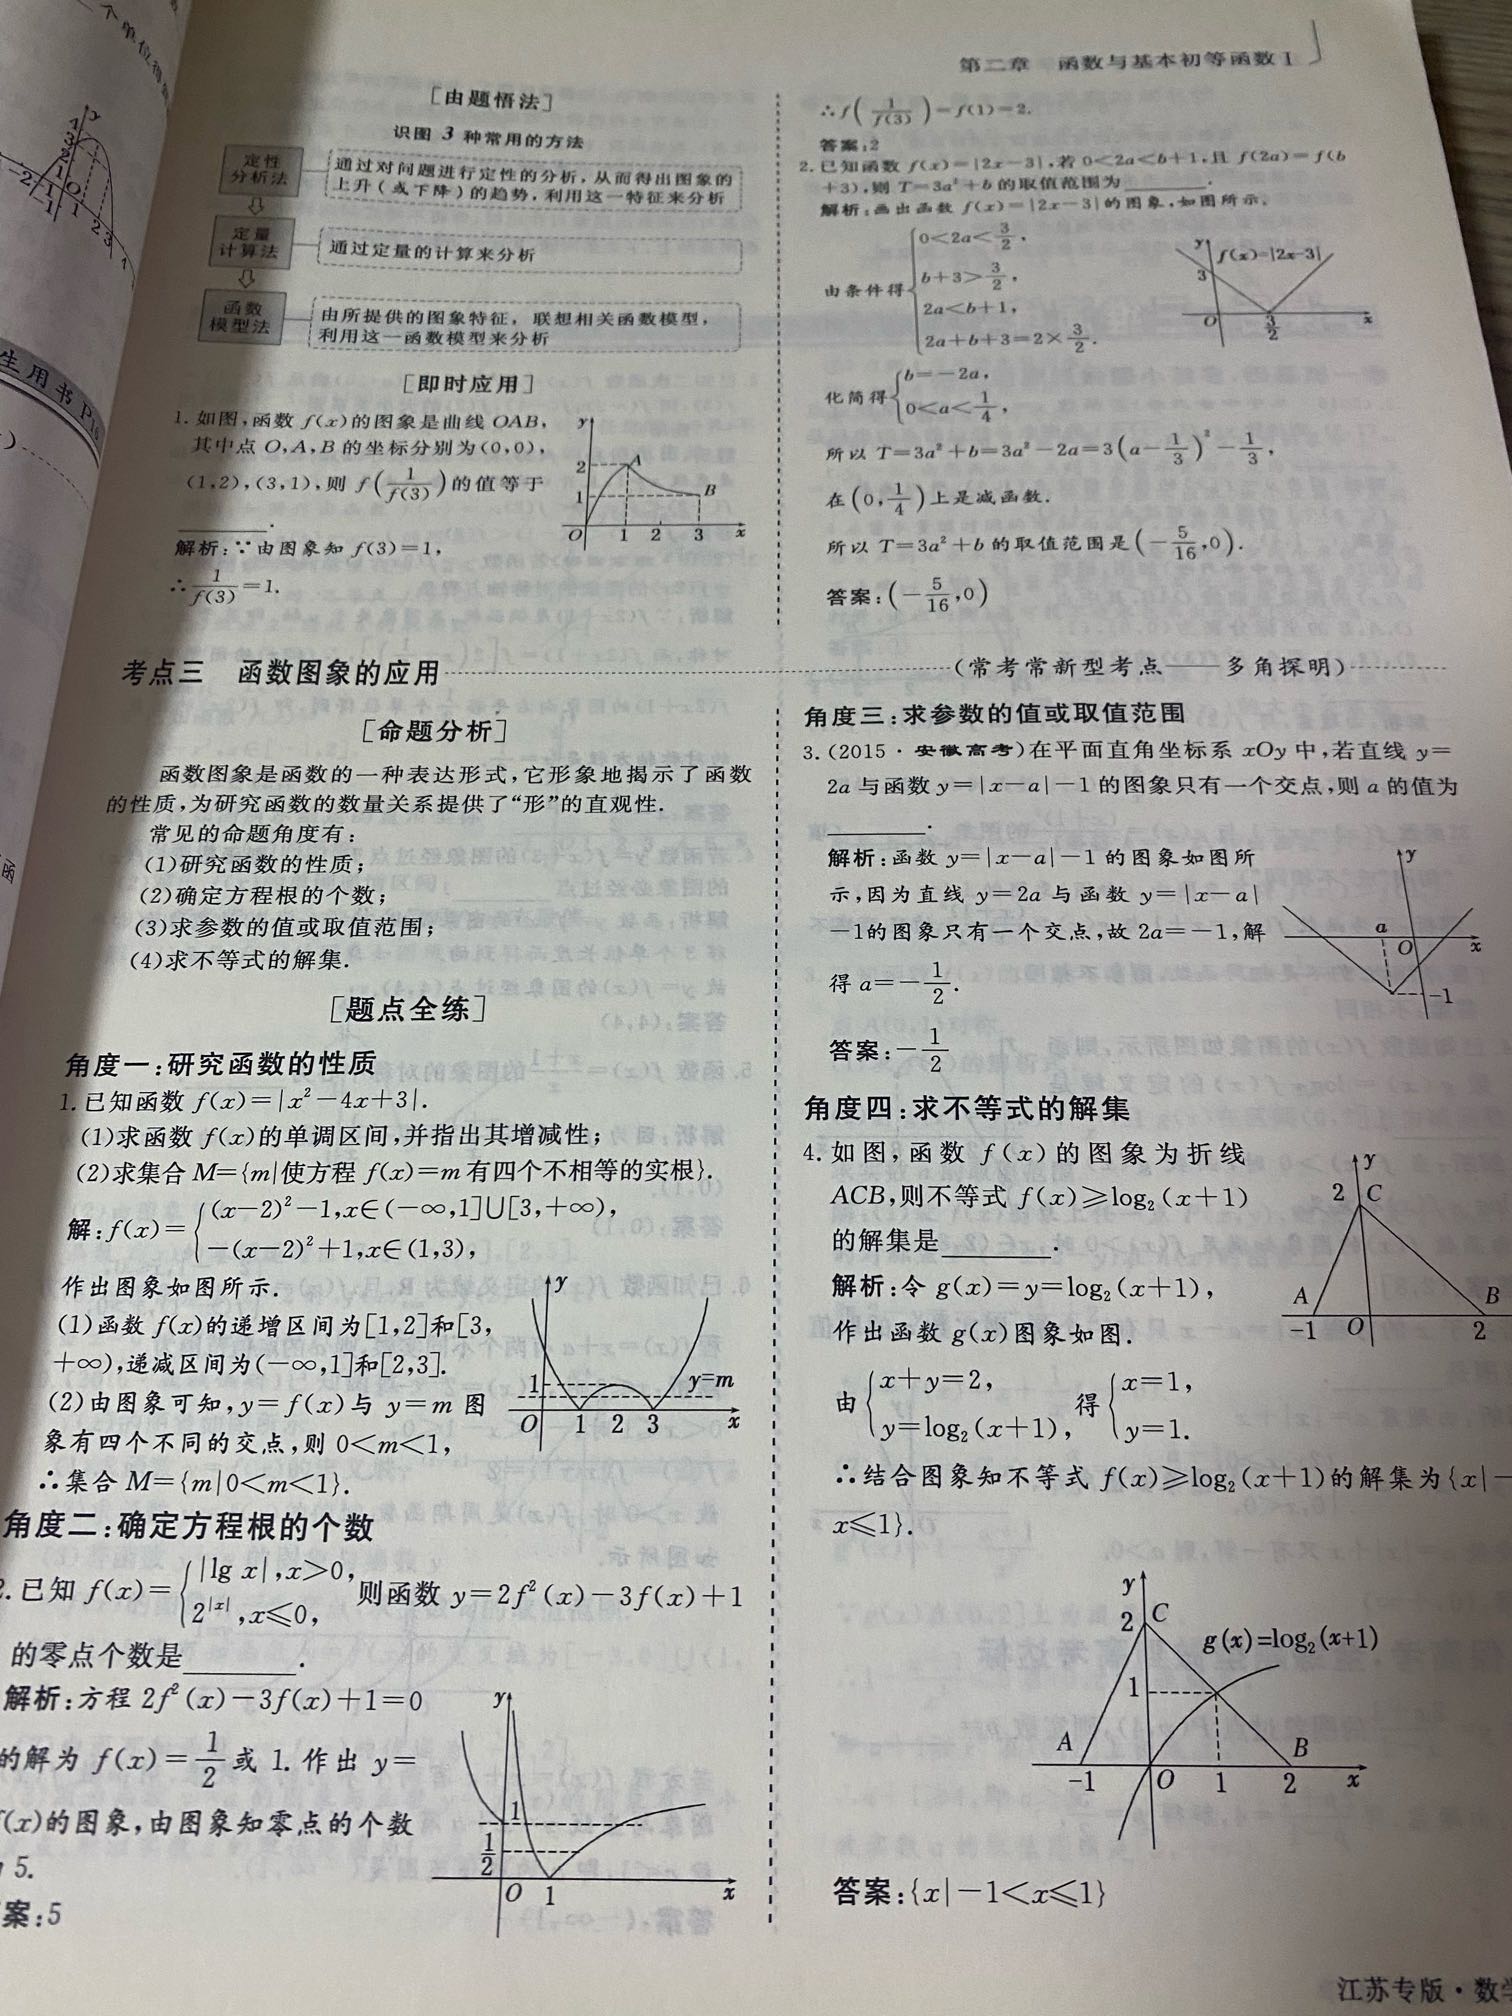 第二章 函数与基本初等函数Ⅰ
[由题悟法]
识图 3 种常用的方法
定性分析法
通过对问题进行定性的分析,从而得出图象的
上升(或下降)的趋势,利用这一特征来分析
定量计算法
通过定量的计算来分析
函数模型法
由所提供的图象特征,联想相关函数模型,
利用这一函数模型来分析
[即时应用]
1.如图,函数 f(x)的图象是曲线 OAB,
其中点 O,A,B 的坐标分别为(0,0),
(1,2),(3,1),则 f(1/f(3))的值等于
________.
解析:∵由图象知 f(3)=1,
∴1/f(3)=1.
y 2 1 A B O 1 2 3 x
∴f(1/f(3))=f(1)=2.
答案:2
2.已知函数 f(x)=|2x-3|,若 0<2a<b+1,且 f(2a)=f(b
+3),则 T=3a²+b 的取值范围为________.
解析:画出函数 f(x)=|2x-3|的图象,如图所示.
由条件得{0<2a<3/2,
b+3>3/2,
2a<b+1,
2a+b+3=2×3/2.
y f(x)=|2x-3| 3 O 3/2 x
化简得{b=-2a,
0<a<1/4,
所以 T=3a²+b=3a²-2a=3(a-1/3)²-1/3,
在(0,1/4)上是减函数.
所以 T=3a²+b 的取值范围是(-5/16,0).
答案:(-5/16,0)
考点三 函数图象的应用 (常考常新型考点——多角探明)
[命题分析]
函数图象是函数的一种表达形式,它形象地揭示了函数
的性质,为研究函数的数量关系提供了“形”的直观性.
常见的命题角度有:
(1)研究函数的性质;
(2)确定方程根的个数;
(3)求参数的值或取值范围;
(4)求不等式的解集.
[题点全练]
角度一:研究函数的性质
1.已知函数 f(x)=|x²-4x+3|.
(1)求函数 f(x)的单调区间,并指出其增减性;
(2)求集合 M={m|使方程 f(x)=m有四个不相等的实根}.
解:f(x)={(x-2)²-1,x∈(-∞,1]∪[3,+∞),
-(x-2)²+1,x∈(1,3),
作出图象如图所示.
(1)函数 f(x)的递增区间为[1,2]和[3,
+∞),递减区间为(-∞,1]和[2,3].
(2)由图象可知,y=f(x)与 y=m 图
象有四个不同的交点,则 0<m<1,
∴集合 M={m|0<m<1}.
y 1 y=m O 1 2 3 x
角度二:确定方程根的个数
2.已知 f(x)={|lg x|,x>0,
2^|x|,x≤0,
则函数 y=2f²(x)-3f(x)+1
的零点个数是________.
解析:方程 2f²(x)-3f(x)+1=0
的解为 f(x)=1/2或 1.作出 y=
f(x)的图象,由图象知零点的个数
5.
案:5
y 1 1/2 O 1 x
角度三:求参数的值或取值范围
3.(2015·安徽高考)在平面直角坐标系 xOy 中,若直线 y=
2a 与函数 y=|x-a|-1 的图象只有一个交点,则 a 的值为
________.
解析:函数 y=|x-a|-1 的图象如图所
示,因为直线 y=2a 与函数 y=|x-a|
-1的图象只有一个交点,故 2a=-1,解
得 a=-1/2.
y a O x -1
答案:-1/2
角度四:求不等式的解集
4.如图,函数 f(x)的图象为折线
ACB,则不等式 f(x)≥log₂(x+1)
的解集是________.
y 2 C A B -1 O 2
解析:令 g(x)=y=log₂(x+1),
作出函数 g(x)图象如图.
由{x+y=2,
y=log₂(x+1),
得{x=1,
y=1.
∴结合图象知不等式 f(x)≥log₂(x+1)的解集为{x|-
x≤1}.
y 2 C g(x)=log₂(x+1) 1 A B -1 O 1 2 x
答案:{x|-1<x≤1}
江苏专版·数学
个单位得
y 4 3 2 1 -2 -1 O 1 2 3
生用书P16
函